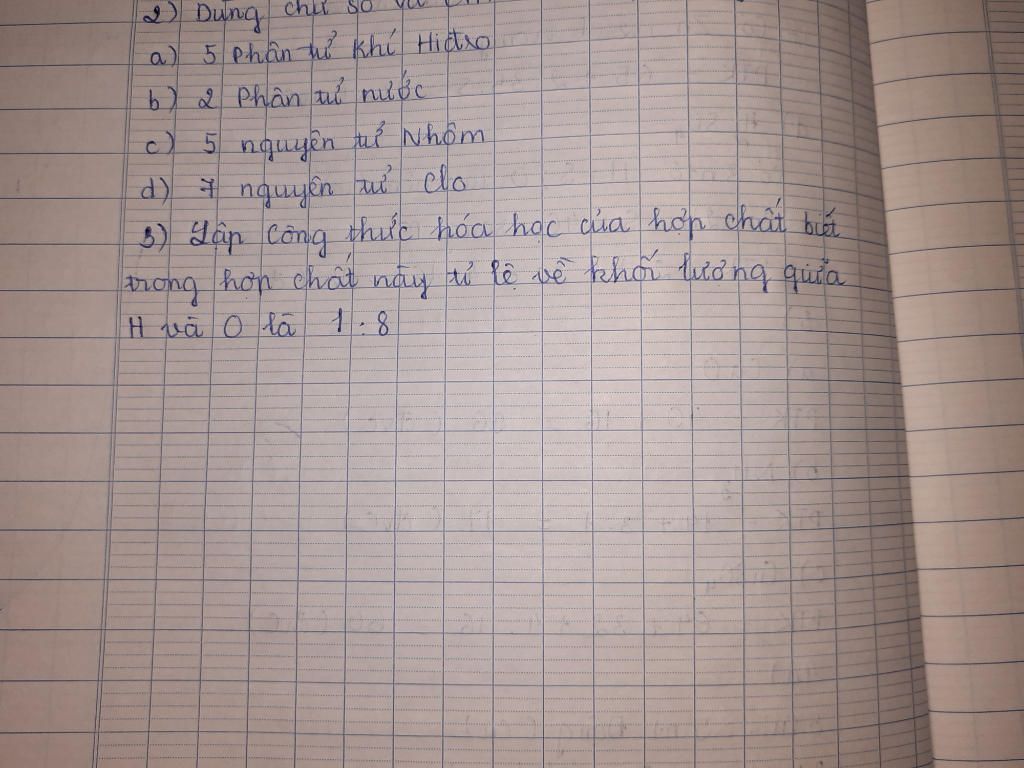 2) Dùng chữ số và
a) 5 phân tử khí Hiđro
b) 2 phân tử nước
c) 5 nguyên tử Nhôm
d) 7 nguyên tử Clo
3) Lập công thức hóa học của hợp chất biết
trong hợp chất này tỉ lệ về khối lượng giữa
H và O là 1:8